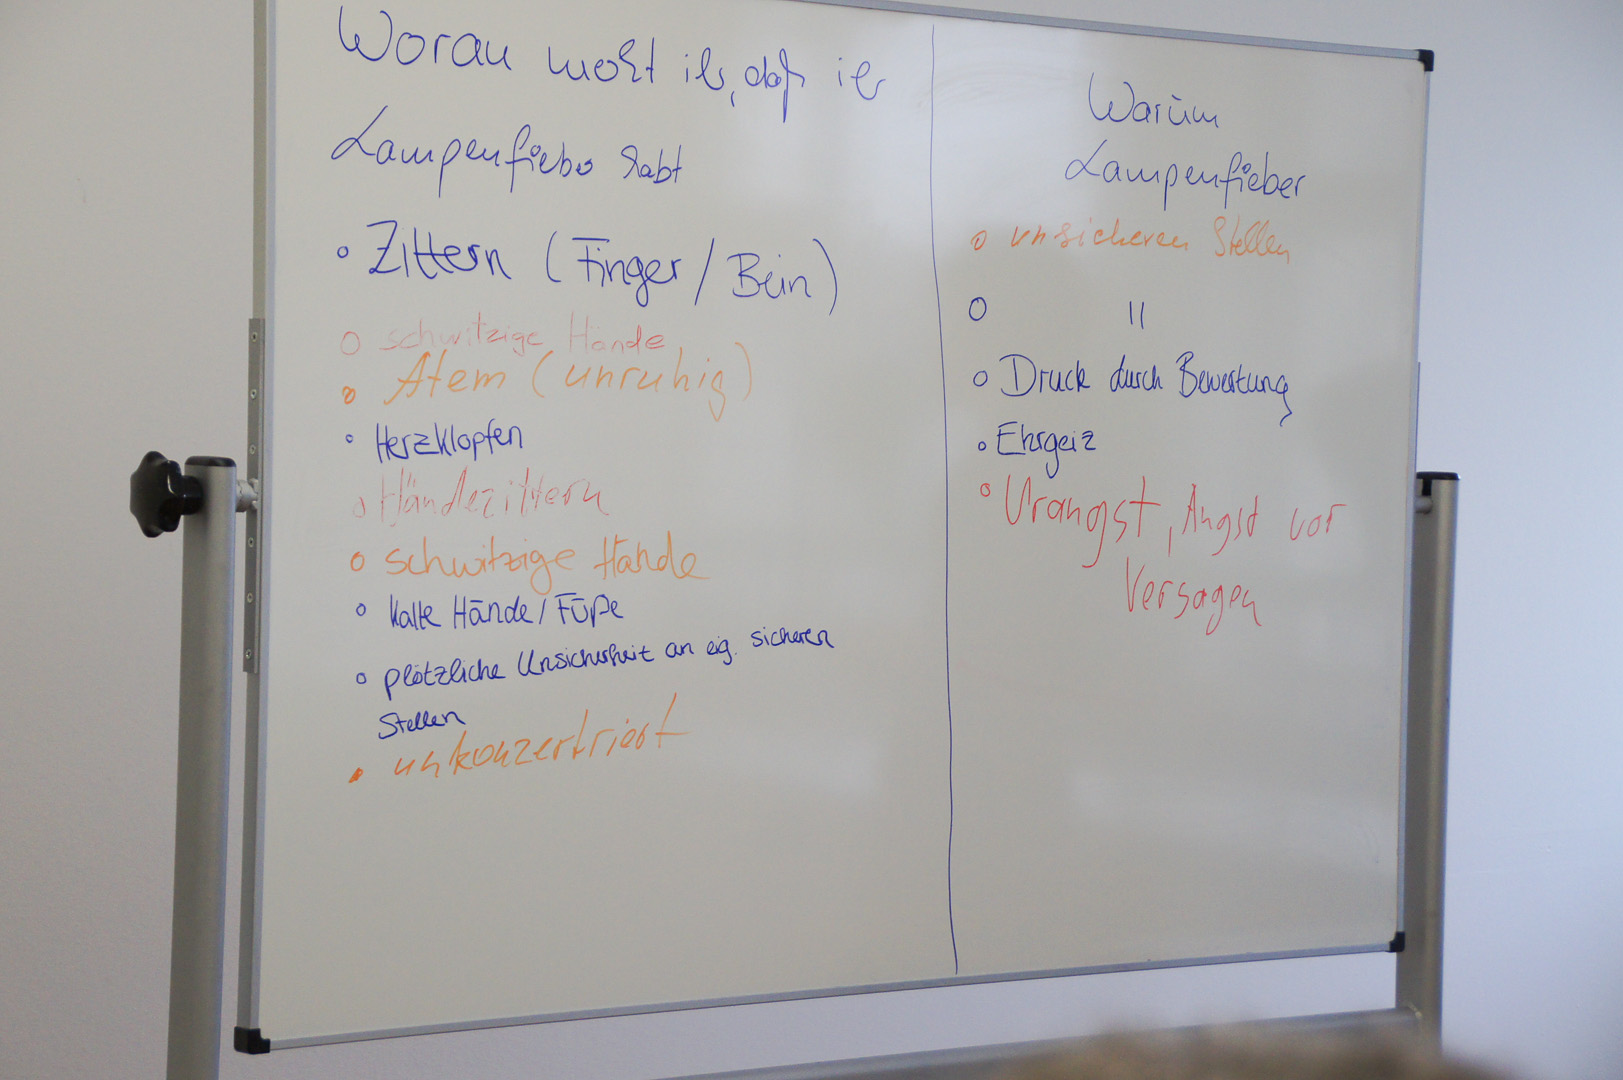 Woran merkt ihr, daß ihr
Lampenfieber habt
Zittern (Finger/Bein)
schwitzige Hände
Atem (unruhig)
Herzklopfen
Händezittern
schwitzige Hände
kalte Hände/Füße
plötzliche Unsicherheit an eig. sicheren
Stellen
unkonzertriert
Warum
Lampenfieber
unsicheren Stellen
"
Druck durch Bewertung
Ehrgeiz
Urangst, Angst vor
Versagen